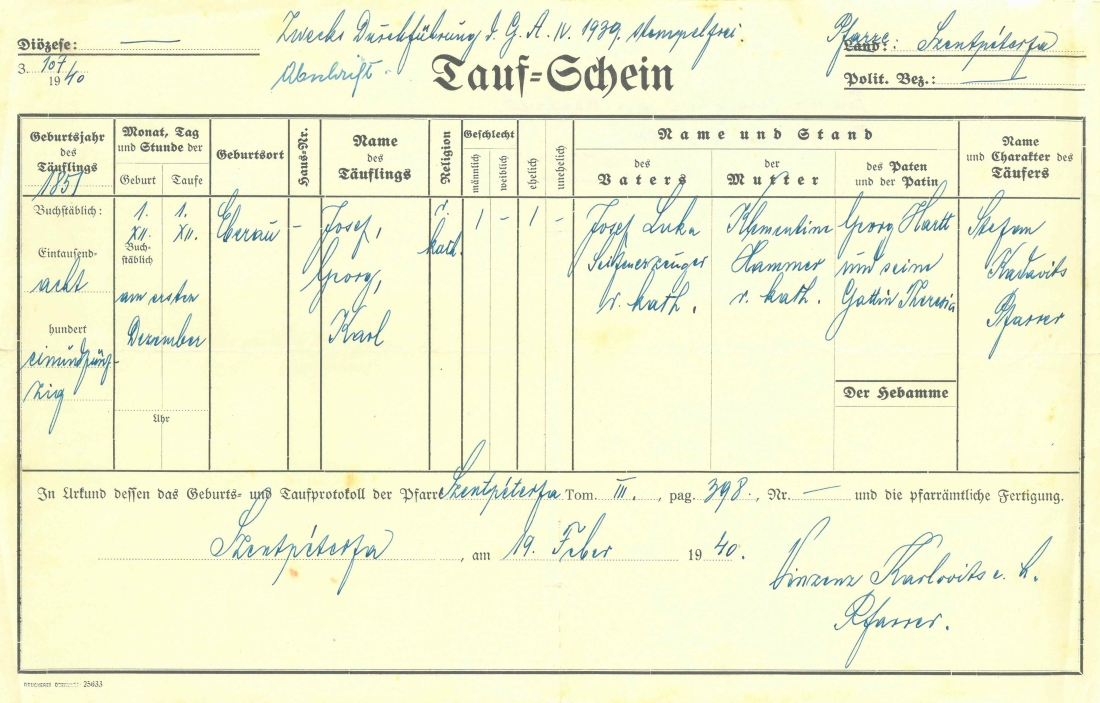 Diözese: —
Zwecks Durchführung d. G. A. IV. 1939. stempelfrei.
Pfarre: Szentpéterfa
Land:
3. 107
19 40
Abschrift.
Tauf-Schein
Polit. Bez.: —
Geburtsjahr des Täuflings
1851
Monat, Tag und Stunde der
Geburt
Taufe
Geburtsort
Haus-Nr.
Name des Täuflings
Religion
Geschlecht
männlich
weiblich
ehelich
unehelich
Name und Stand
des Vaters
der Mutter
des Paten und der Patin
Name und Charakter des Täufers
Buchstäblich:
Eintausend-
acht
hundert
einundfünf-
zig
1. XII.
1. XII.
Buch-
stäblich
am ersten
Dezember
Uhr
Eberau
–
Josef,
Georg,
Karl
r.
kath.
1
–
1
–
Josef Luka
Seifenerzeuger
r. kath.
Klementine
Hammer
r. kath.
Georg Hartl
und seine
Gattin Theresia
Der Hebamme
Stefan
Kadavits
Pfarrer
In Urkund dessen das Geburts- und Taufprotokoll der Pfarre Szentpéterfa Tom. III., pag. 398., Nr. — und die pfarrämtliche Fertigung.
Szentpéterfa, am 19. Feber 1940.
Vinzenz Karlovits e. h.
Pfarrer.
25633